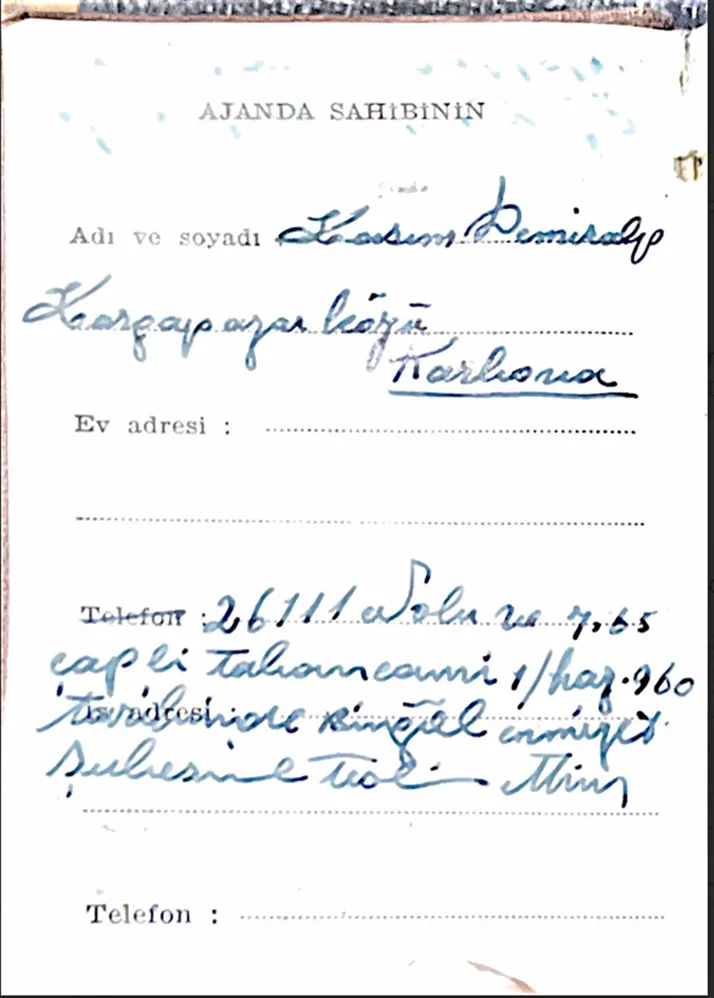 AJANDA SAHİBİNİN
Adı ve soyadı Kasım Demiralp
Kargapazar köyü
Karlıova
Ev adresi :
Telefon : 26111 Nolu ve 7.65
çapli tabancami 1/haz.960
İş adresi : tarihinde Bingöl emniyet
Şubesine
Telefon :